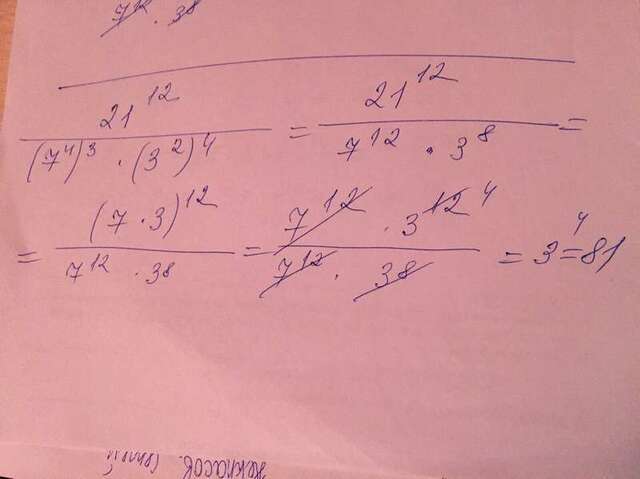 7^12 · 3^8
21^12 / ((7^4)^3 · (3^2)^4) = 21^12 / (7^12 · 3^8) =
= (7 · 3)^12 / (7^12 · 3^8) = 7^12 · 3^12 4 / (7^12 · 3^8) = 3^4 = 81